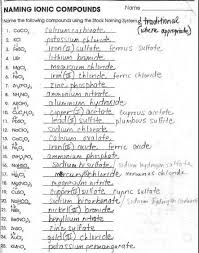 NAMING IONIC COMPOUNDS
Name the following compounds using the Stock Naming System & traditional
(where appropriate)
1. CaCO₃ calcium carbonate
2. KCl potassium chloride
3. iron(II) sulfate ferrous sulfate
4. LiBr lithium bromide
5. MgCl₂ magnesium chloride
6. FeCl₃ iron(III) chloride ferric chloride
7. zinc phosphate
8. NH₄NO₃ ammonium nitrate
9. Al(OH)₃ aluminum hydroxide
10. copper(I) acetate cuprous acetate
11. PbSO₄ lead(II) sulfate plumbous sulfite
12. NaClO₃ sodium chlorate
13. CaC₂O₄ calcium oxalate
14. Fe₂O₃ iron(III) oxide ferric oxide
15. (NH₄)₃PO₄ ammonium phosphate
16. NaHSO₄ sodium hydrogen sulfate
17. Hg₂Cl₂ mercury chloride mercurous chloride
18. Mg(NO₂)₂ magnesium nitrite
19. CuSO₄ copper(II) sulfate cupric sulfate
20. NaHCO₃ sodium bicarbonate / sodium hydrogen carbonate
21. NiBr₃ nickel(III) bromide
22. Be(NO₃)₂ beryllium nitrate
23. ZnSO₄ zinc sulfate
24. AuCl₃ gold(III) chloride
25. KMnO₄ potassium permanganate